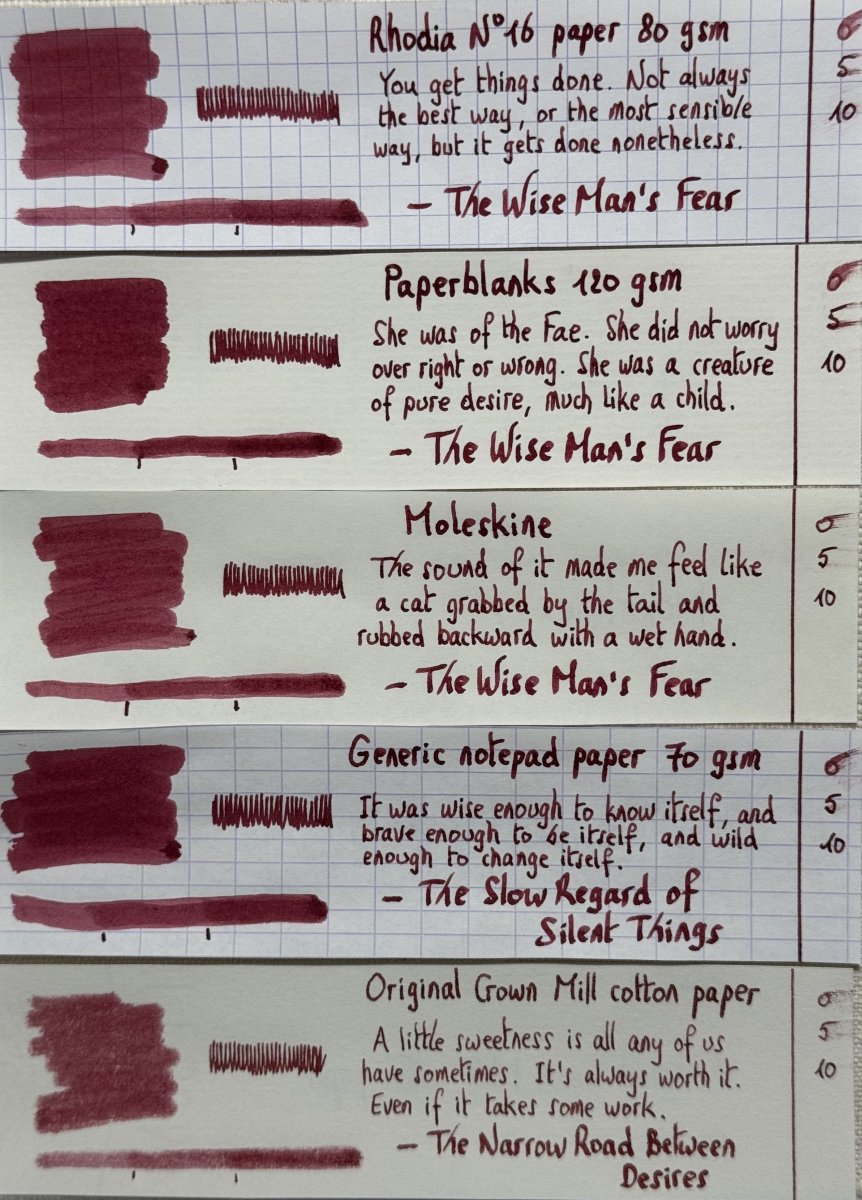 Rhodia N°16 paper 80 gsm
You get things done. Not always
the best way, or the most sensible
way, but it gets done nonetheless.
– The Wise Man's Fear
0
5
10
Paperblanks 120 gsm
She was of the Fae. She did not worry
over right or wrong. She was a creature
of pure desire, much like a child.
– The Wise Man's Fear
0
5
10
Moleskine
The sound of it made me feel like
a cat grabbed by the tail and
rubbed backward with a wet hand.
– The Wise Man's Fear
0
5
10
Generic notepad paper 70 gsm
It was wise enough to know itself, and
brave enough to be itself, and wild
enough to change itself.
– The Slow Regard of
Silent Things
0
5
10
Original Crown Mill cotton paper
A little sweetness is all any of us
have sometimes. It's always worth it.
Even if it takes some work.
– The Narrow Road Between
Desires
0
5
10